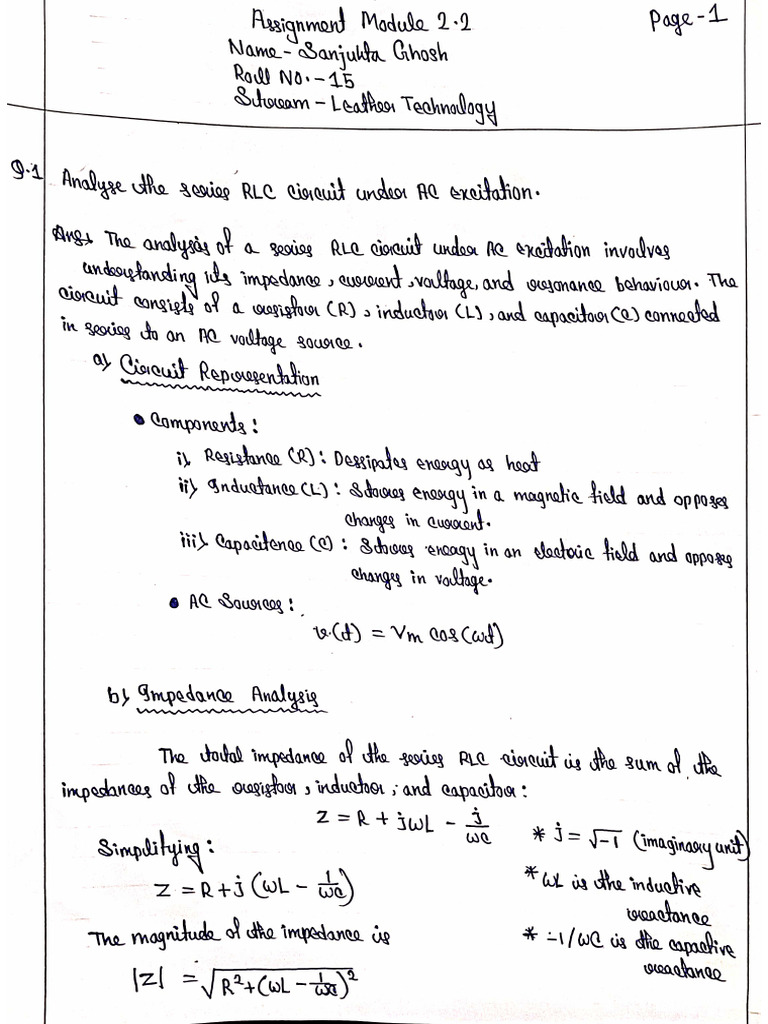 Assignment Module 2.2
Page-1
Name- Sanjukta Ghosh
Roll No.-15
Stream - Leather Technology
Q.1 Analyse the series RLC circuit under AC excitation.
Ans: The analysis of a series RLC circuit under AC excitation involves
understanding its impedance, current, voltage, and resonance behaviour. The
circuit consists of a resistor (R), inductor (L), and capacitor (C) connected
in series to an AC voltage source.
a) Circuit Representation
• Components:
i) Resistance (R): Dessipates energy as heat
ii) Inductance (L): Stores energy in a magnetic field and opposes
changes in current.
iii) Capacitence (C): Stores energy in an electric field and opposes
changes in voltage.
• AC Sources:
v(t) = Vm cos(ωt)
b) Impedance Analysis
The total impedance of the series RLC circuit is the sum of the
impedances of the resistor, inductor, and capacitor:
Z = R + jωL - j/ωC
* j = √-1 (imaginary unit)
Simplifying:
Z = R + j (ωL - 1/ωC)
* ωL is the inductive
reactance
The magnitude of the impedance is
* -1/ωC is the capactive
reactance
|Z| = √R²+(ωL - 1/ωC)²